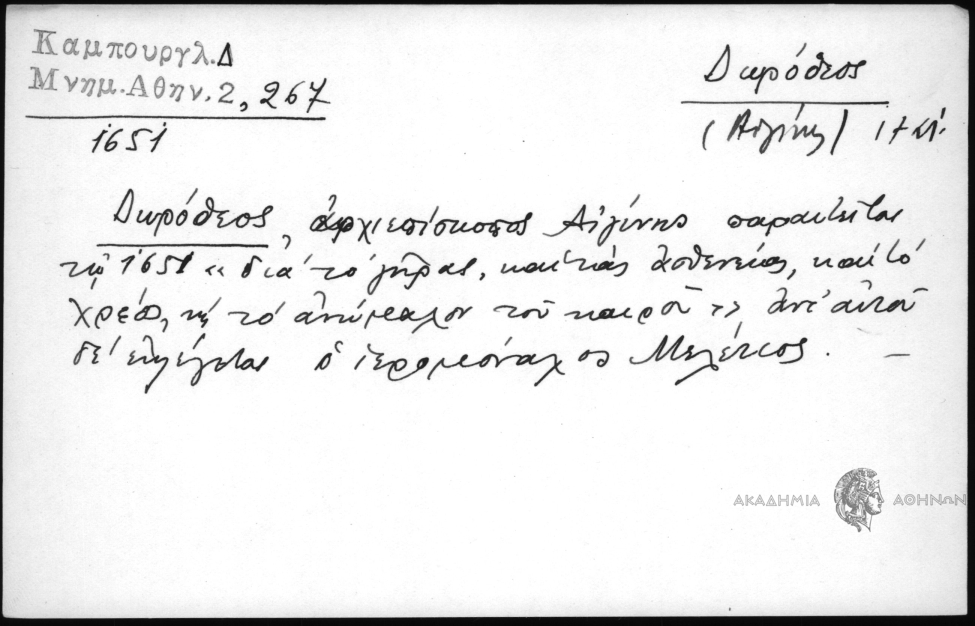 Καμπουργλ.Δ
Μνημ.Αθην.2, 267
1651
Δωρόθεος
(Αἰγίνης) 17 αἰ.
Δωρόθεος, ἀρχιεπίσκοπος Αἰγίνης παραιτεῖται
τῷ 1651 « διὰ τὸ γῆρας, καὶ τὰς ἀσθενείας, καὶ τὸ
χρέος, τὸ ἀνώμαλον τοῦ καιροῦ » ἀντ' αὐτοῦ
δὲ ἐκλέγεται ὁ ἱερομόναχος Μελέτιος. —
ΑΚΑΔΗΜΙΑ ΑΘΗΝΩΝ